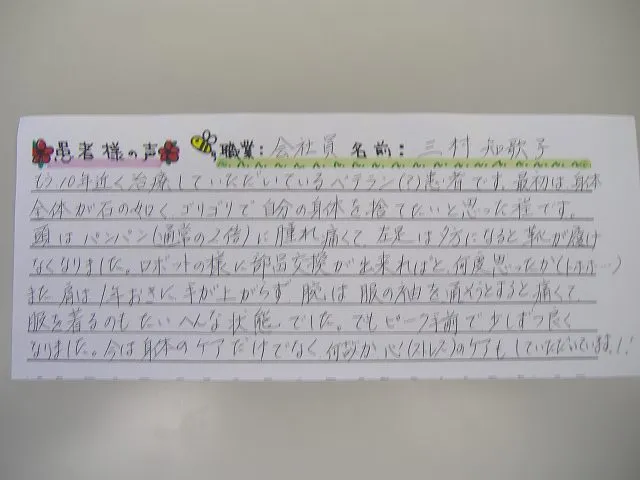 患者様の声 職業: 会社員 名前: 三村 知歌子
もう10年近く治療していただいているベテラン(?)患者です。最初は、身体
全体が石の如く、ゴリゴリで自分の身体を捨てたいと思った程です。
頭はパンパン(通常の2倍)に腫れ痛くて、左足は夕方になると靴が履け
なくなりました。ロボットの様に部品交換が出来ればと、何度思ったか(トホホ…)
また肩は1年おきに、手が上がらず 腕は服の袖を通そうとすると痛くて、
服を着るのもたいへんな状態でした。でもピーク手前で少しずつ良く
なりました。今は身体のケアだけでなく、何故か心(ストレス)のケアもしていただいています。!